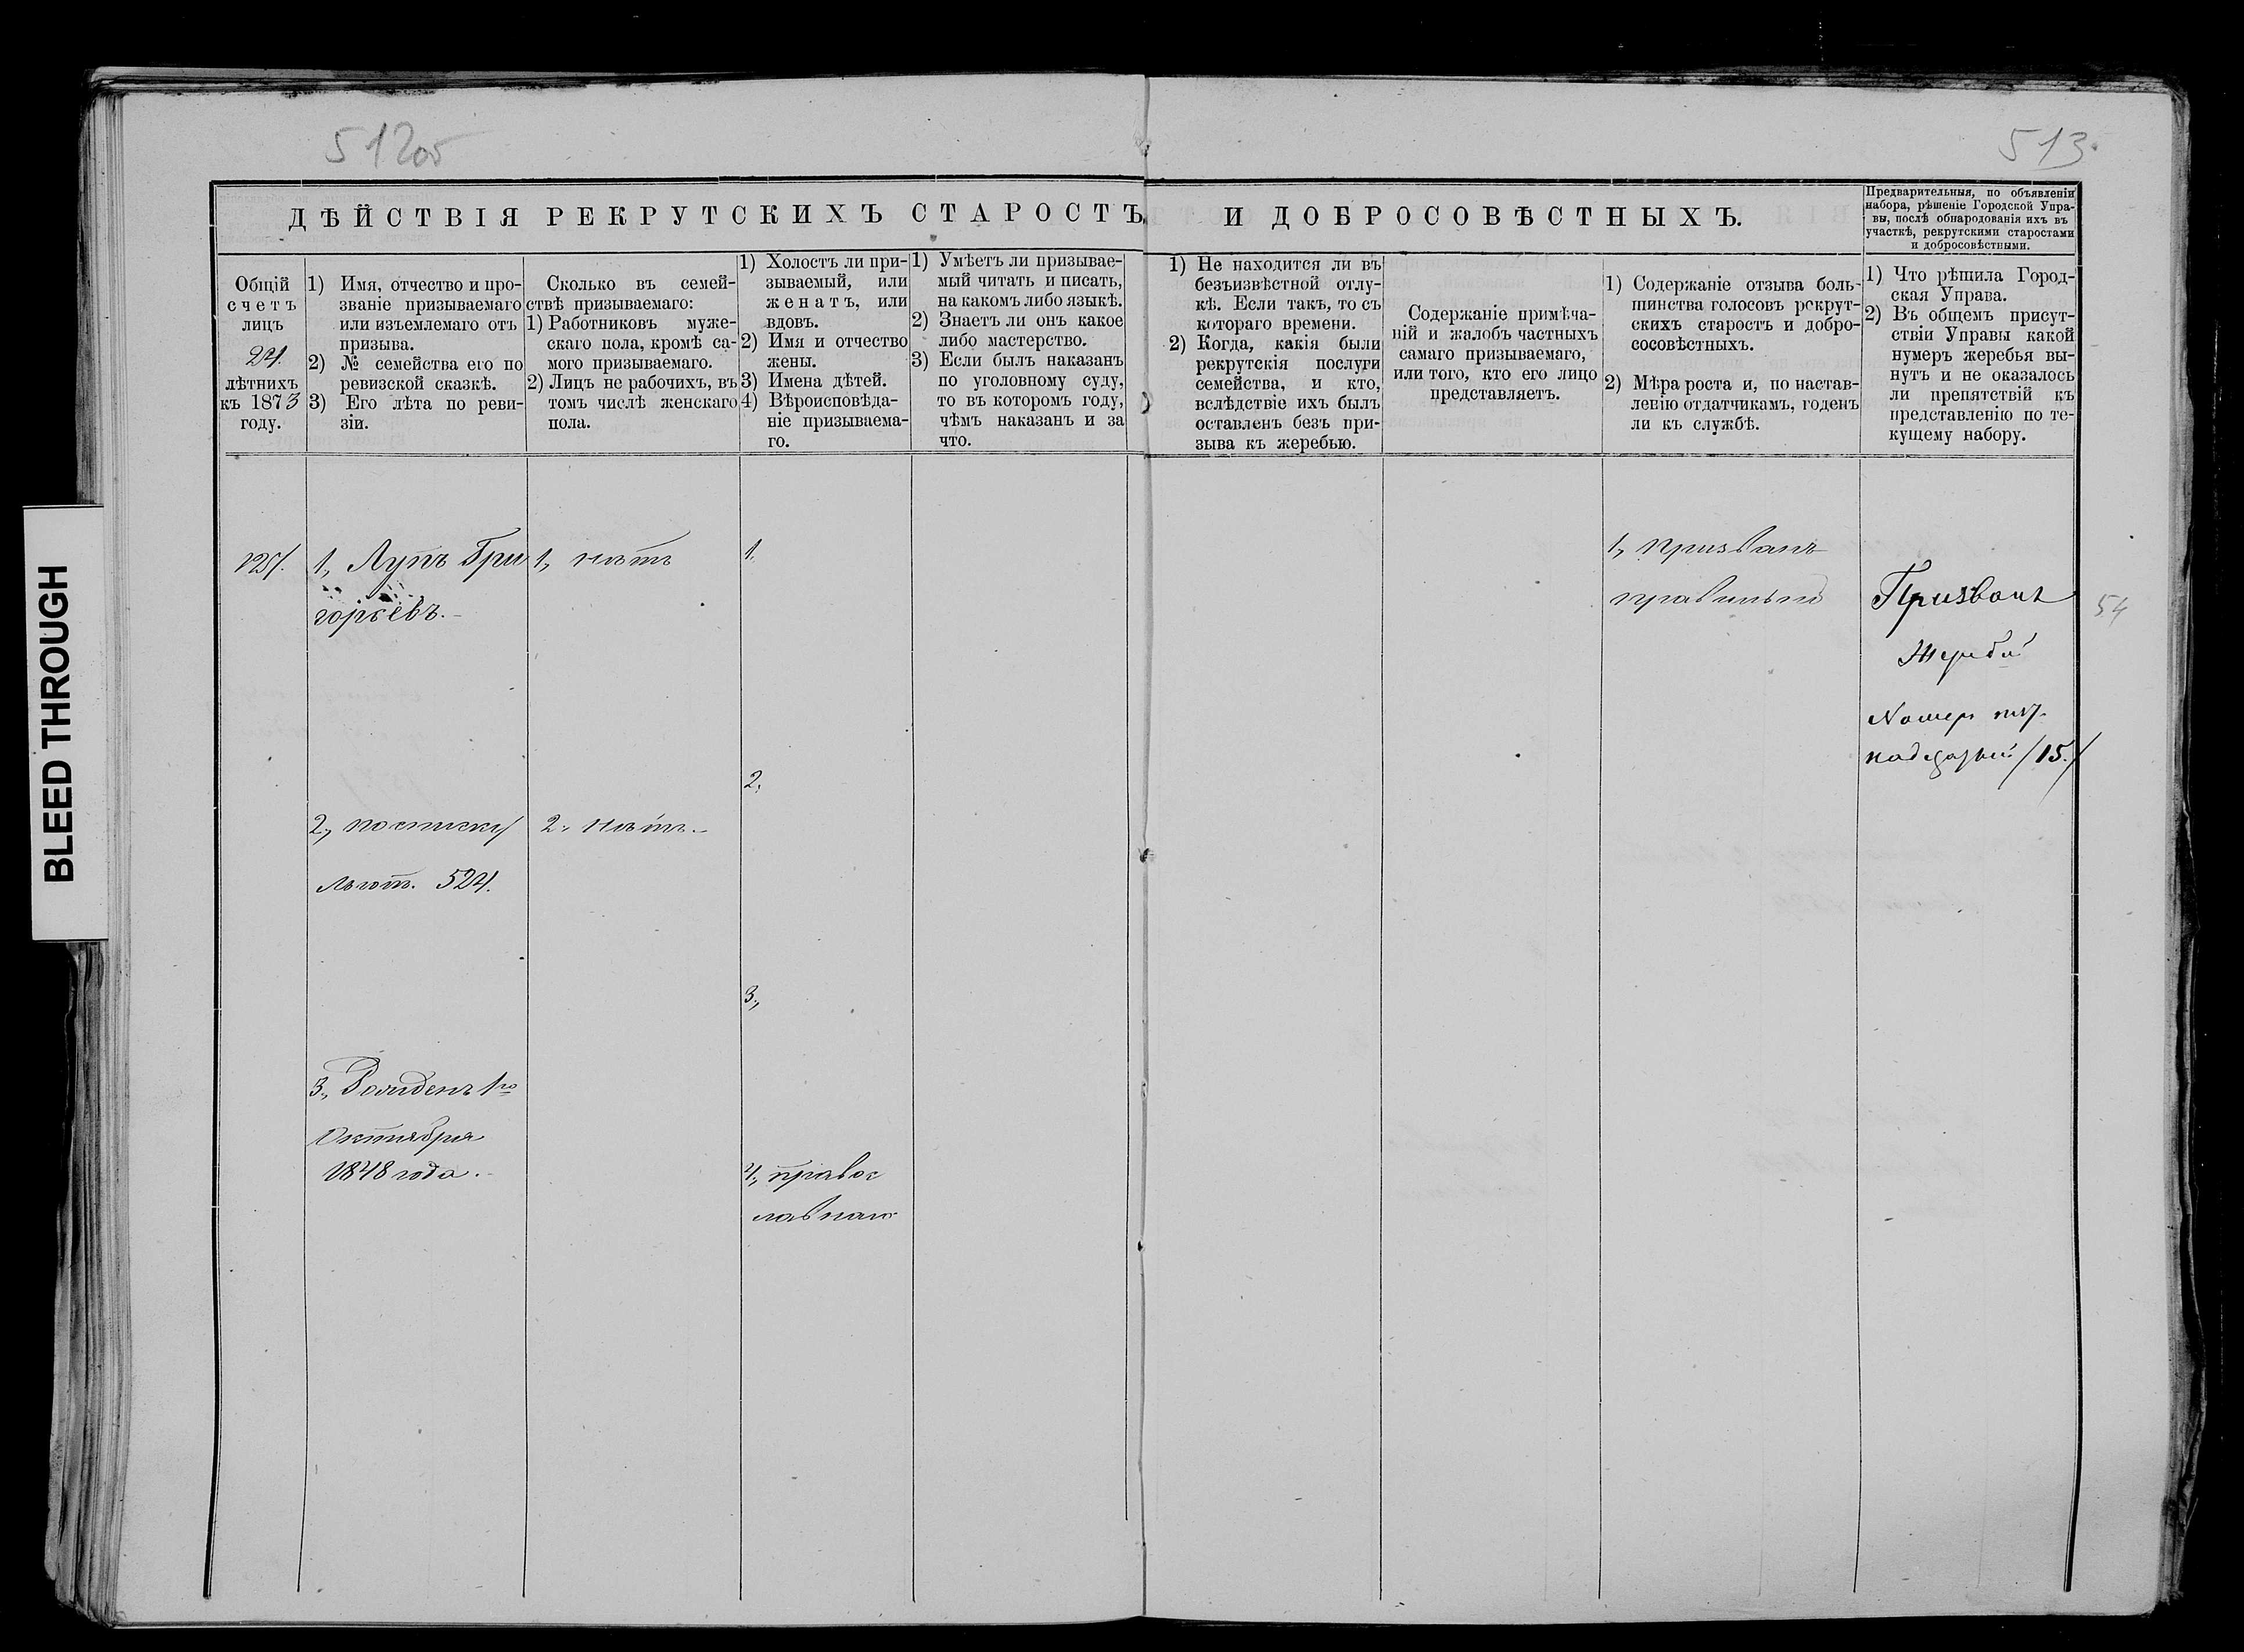 512об
513.
ДѢЙСТВІЯ РЕКРУТСКИХЪ СТАРОСТЪ И ДОБРОСОВѢСТНЫХЪ.
Предварительныя, по объявленіи
набора, рѣшеніе Городской Упра-
вы, послѣ обнародованія ихъ въ
участкѣ, рекрутскими старостами
и добросовѣстными.
Общій
счетъ
лицъ
24.
лѣтнихъ
къ 1873
году.
1) Имя, отчество и про-
званіе призываемаго
или изъемлемаго отъ
призыва.
2) № семейства его по
ревизской сказкѣ.
3) Его лѣта по реви-
зіи.
Сколько въ семей-
ствѣ призываемаго:
1) Работниковъ муже-
скаго пола, кромѣ са-
мого призываемаго.
2) Лицъ не рабочихъ, въ
томъ числѣ женскаго
пола.
1) Холостъ ли при-
зываемый, или
женатъ, или
вдовъ.
2) Имя и отчество
жены.
3) Имена дѣтей.
4) Вѣроисповѣда-
ніе призываема-
го.
1) Умѣетъ ли призывае-
мый читать и писать,
на какомъ либо языкѣ.
2) Знаетъ ли онъ какое
либо мастерство.
3) Если былъ наказанъ
по уголовному суду,
то въ которомъ году,
чѣмъ наказанъ и за
что.
1) Не находится ли въ
безъизвѣстной отлу-
кѣ. Если такъ, то съ
котораго времени.
2) Когда, какія были
рекрутскія послуги
семейства, и кто,
вслѣдствіе ихъ былъ
оставленъ безъ при-
зыва къ жеребью.
Содержаніе примѣча-
ній и жалобъ частныхъ
самаго призываемаго,
или того, кто его лицо
представляетъ.
1) Содержаніе отзыва боль-
шинства голосовъ рекрут-
скихъ старостъ и добро-
сосовѣстныхъ.
2) Мѣра роста и, по настав-
ленію отдатчикамъ, годенъ
ли къ службѣ.
1) Что рѣшила Город-
ская Управа.
2) Въ общемъ присут-
ствіи Управы какой
нумеръ жеребья вы-
нутъ и не оказалось
ли препятствій къ
представленію по те-
кущему набору.
1, Лупъ Гри
горьевъ.-
2, посписку
льгот. 524.
3., Рожденъ 1го
Октября
1848 года.-
1, нѣтъ
2. нѣтъ.-
1.
2.
3.,
4., правос
лавнаго
1, призванъ
правильно
Призванъ
Жребій
Номеръ пят-
надцатый /15./
54
BLEED THROUGH